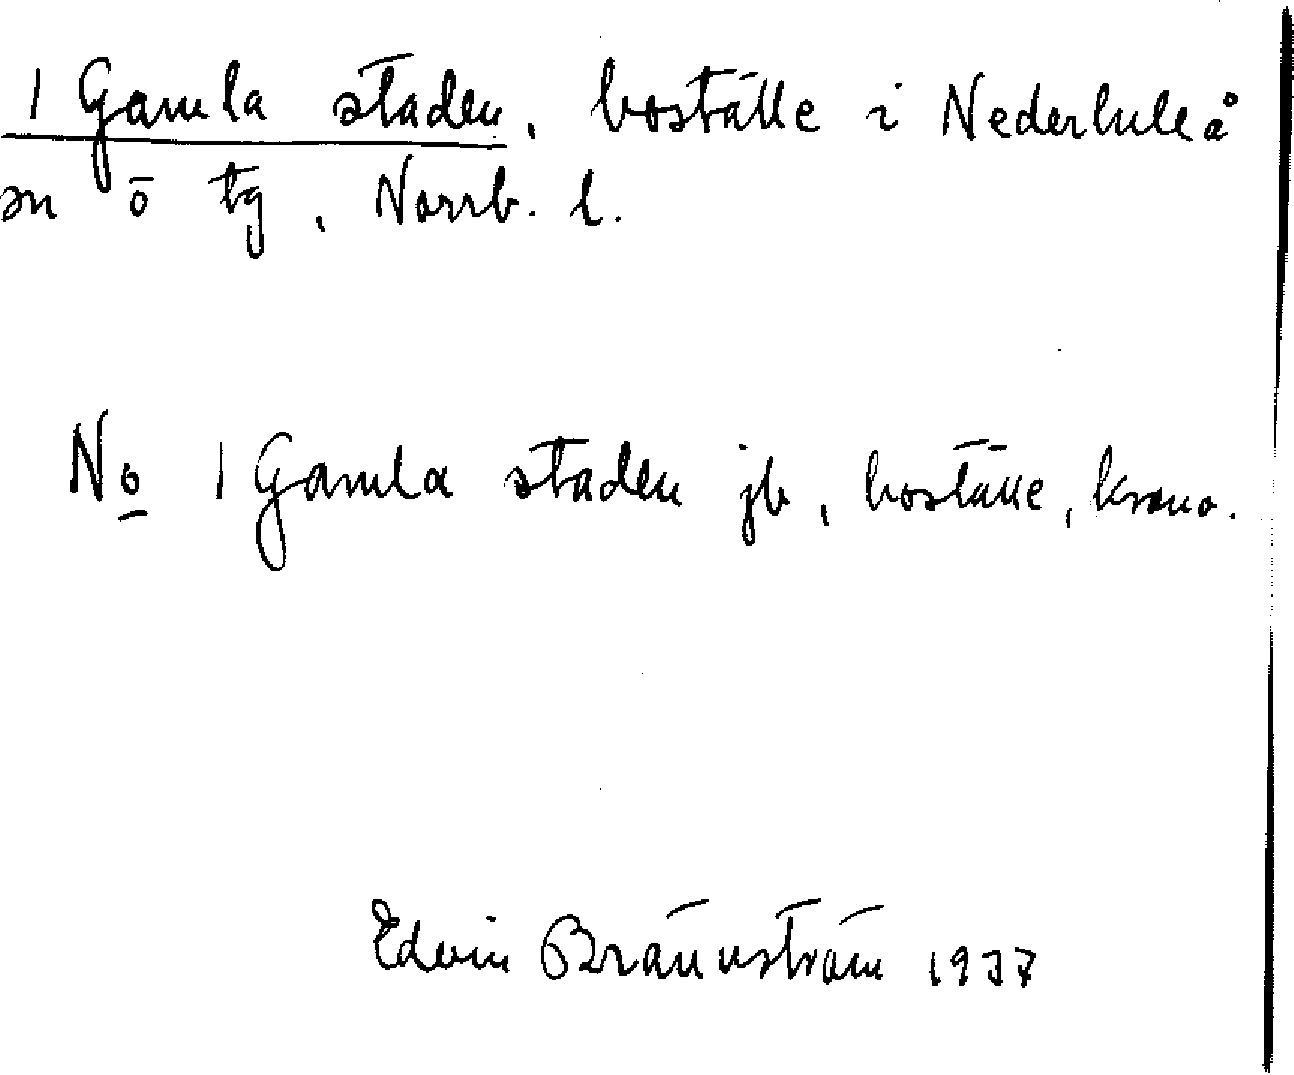 1 Gamla staden, boställe i Nederluleå
sn ö tg, Norrb. l.
No 1 Gamla staden jb, boställe, krono.
Edvin Brännström 1937